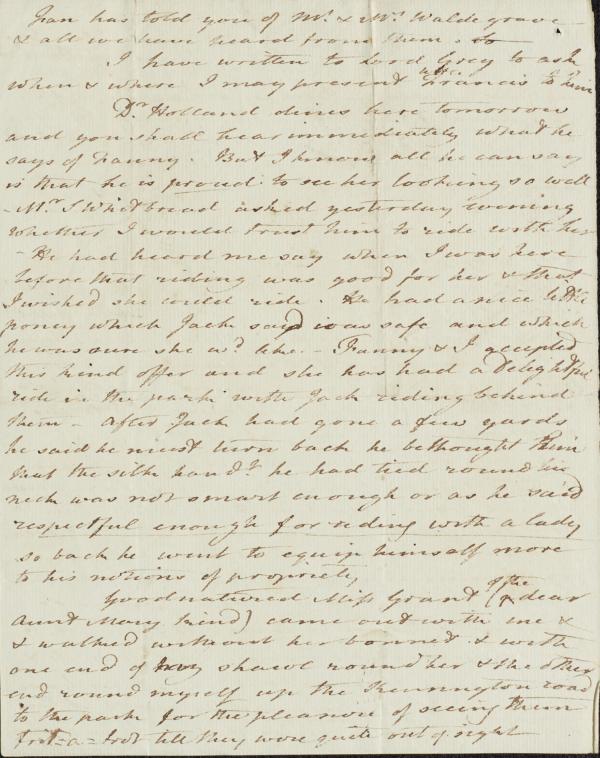 Fan has told you of Mr. & Mrs. Waldegrave
& all we have heard from them. So
I have written to Lord Grey to ask
when & where I may present little Francis to him
Dr. Holland dines here tomorrow
and you shall hear immediately what he
says of Fanny. But I know all he can say
is that he is proud to see her looking so well
- Mr. S Whitbread asked yesterday evening
whether I would trust him to ride with her
- He had heard me say when I was here
before that riding was good for her & that
I wished she could ride. He had a nice little
poney which Jack said was safe and which
he was sure she wd. like. - Fanny & I accepted
this kind offer and she has had a delightful
ride in the park with Jack riding behind
them - After Jack had gone a few yards
he said he must turn back he bethought him
that the silk handf. he had tied round his
neck was not smart enough or as he said
respectful enough for riding with a lady
so back he went to equip himself more
to his notions of propriety
Goodnatured Miss Grant (of the dear
Aunt Mary kind) came out with me &
& walked without her bonnet & with
one end of my shawl round her & the other
end round myself up the Kennington road
to the park for the pleasure of seeing them
trot-a-trot till they were quite out of sight